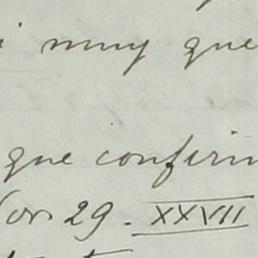 muy que
que confirm
Nov. 29. XXVII